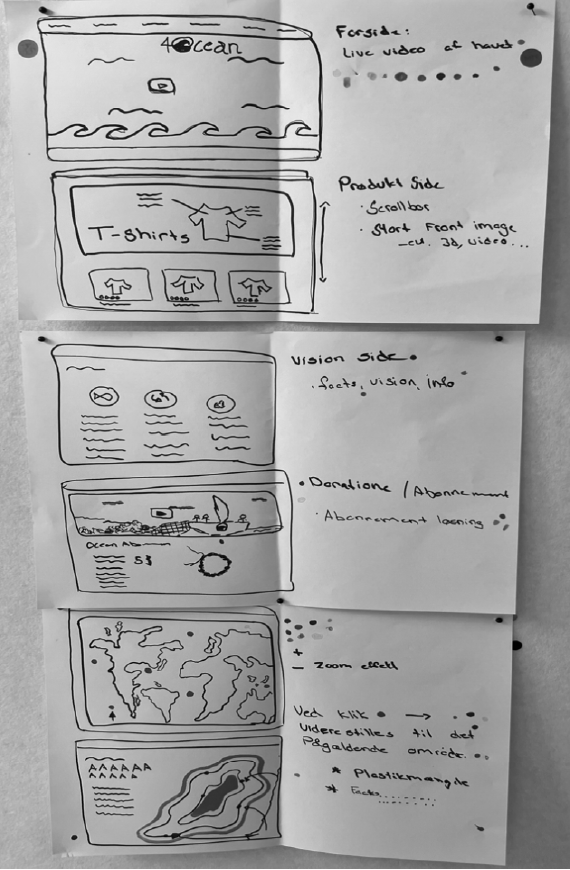 4Ocean
Forside:
Live video af havet
T-Shirts
Produkt Side
· Scrollbar
· Start Front image
_evt. 3d, video...
Vision side
· facts, vision, info
· Donations / Abonnement
· Abonnement løsning
Ocean Abonnem
5$
+
- Zoom effekt
Ved klik →
Viderestilles til det
Pågældende område.
* Plastikmængde
* Facts........
AAAAAA
AAAAA